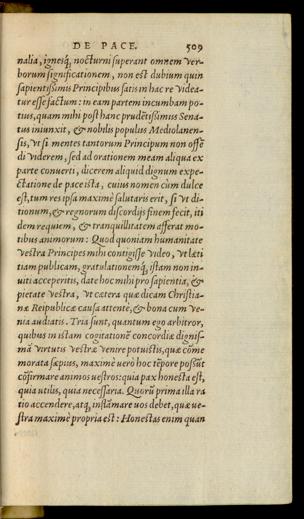 DE PACE. 509
nalia, ignesq́, nocturni superant omnem ver-
borum significationem, non est dubium quin
sapientissimis Principibus satis in hac re videa-
tur esse factum: in eam partem incumbam po-
tius, quam mihi post hanc prudētissimus Sena-
tus iniunxit, & nobilis populus Mediolanen-
sis, vt si mentes tantorum Principum non offē
di viderem, sed ad orationem meam aliqua ex
parte conuerti, dicerem aliquid dignum expe-
ctatione de pace ista, cuius nomen cùm dulce
est, tum res ipsa maximè salutaris erit, si vt di-
tionum, & regnorum discordijs finem fecit, iti
dem requiem, & tranquillitatem afferat mo-
tibus animorum: Quod quoniam humanitate
vestra Principes mihi contigisse video, vt læti
tiam publicam, gratulationemq́, istam non in-
uiti acceperitis, date hoc mihi pro sapientia, &
pietate vestra, vt cætera quædam Christia-
næ Reipublicæ causa attentè, & bona cum ve-
nia audiatis. Tria sunt, quantum ego arbitror,
quibus in istam cogitationē concordiæ dignis-
mā virtutis vestræ venire potuistis, quæ cōme
morata sæpius, maximè uerò hoc tēpore possūt
cōfirmare animos uestros: quia pax honesta est,
quia utilis, quia necessaria. Quorū prima illa ra
tio accendere, atq, inflāmare uos debet, quæ ue-
stra maximè propria est: Honestas enim quan